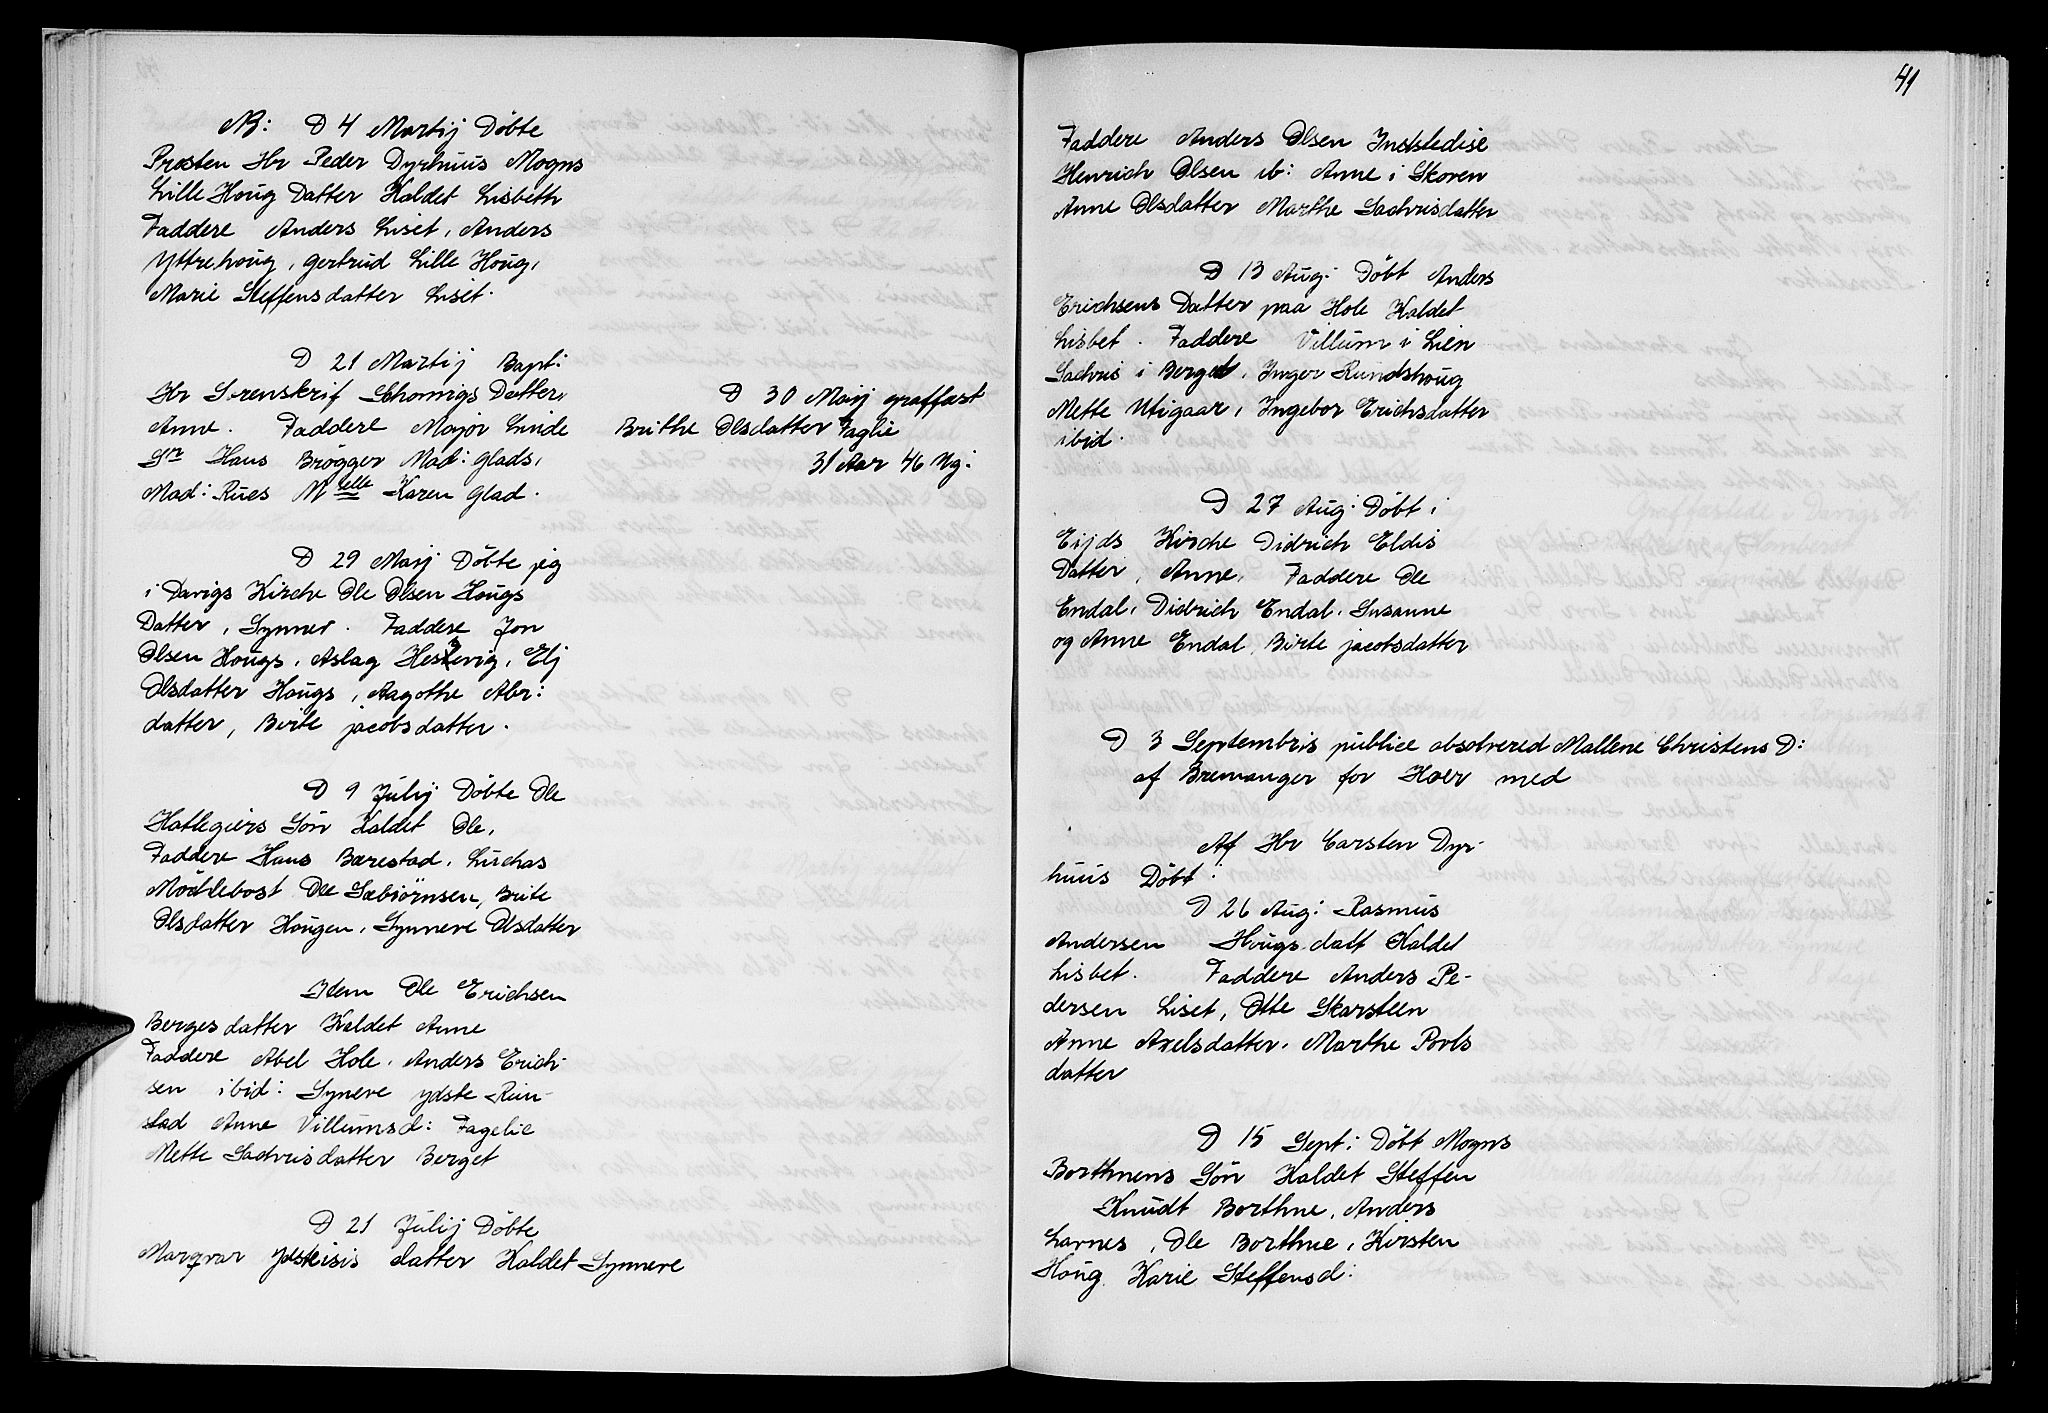 NB: D 4 Martij Döbte
Prosten Hr Peder Dyrhuus Mogns
Lille Houg Datter Kaldet Lisbeth
Faddere Anders Liset, Anders
Yttrehoug, Gertrud Lille Houg,
Marie Steffensdatter Liset.
D 21 Martij Bapt:
Hr Sorenskrif Schonnigs Datter,
Anne. Faddere Major Linde
Sr Hans Brögger Mad: Glads,
Mad: Rues Melle Karen Glad.
D 29 Maij Döbte jeg
i Davigs Kirche Ole Olsen Hougs
Datter, Synner. Faddere Jon
Olsen Hougs, Aslag Hestevig, Elj
Olsdatter Hougs, Aagothe Abr:
datter, Birte jacobsdatter.
D 9 Julij Döbte Ole
Hatlegiers Sön Kaldet Ole,
Faddere Hans Bærestad, Luchas
Möcklebost Ole Sæbiörnsen, Brite
Olsdatter Hougen, Synnere Olsdatter
Idem Ole Erichsen
Berges datter Kaldet Anne
Faddere Abel Hole, Anders Erich-
sen ibid: Synere ydste Rim-
stad Anne Villumsd: Fagelie
Mette Sachrisdatter Berget
D 21 Julij Döbte
Marqvar Ydsteisis datter Kaldet Synnere
D 30 Maij graffæst
Brithe Olsdatter Faglie
31 Aar 46 Ug:
41
Faddere Anders Olsen Indstedise
Henrich Olsen ib: Anne i Skoren
Anne Olsdatter Marthe Sachrisdatter
D 13 Aug: Döbt Anders
Erichsens Datter paa Hole Kaldet
Lisbet. Faddere Villum i Lien
Sachris i Berget, Inger Rundshoug
Mette Utigaar, Ingebor Erichsdatter
ibid.
D 27 Aug: Döbt i
Eijds Kirche Didrich Eldis
Datter, Anne, Faddere Ole
Endal, Didrich Endal, Susanne
og Anne Endal, Birte jacobsdatter
D 3 Septembris publice absolvered Mallene Christens D:
af Bremanger for Hoer med
Af Hr Carsten Dyr-
huus Döbt:
D 26 Aug: Rasmus
Andersen Hougs datt Kaldet
Lisbet. Faddere Anders Pe-
dersen Liset, Otte Skarsteen
Anne Axelsdatter, Marthe Povls
datter
D 15 Sept: Döbt Mogns
Borthnens Sön Kaldet Steffen
Knudt Borthne, Anders
Larnes, Ole Borthne, Kirsten
Houg Karie Steffensd: